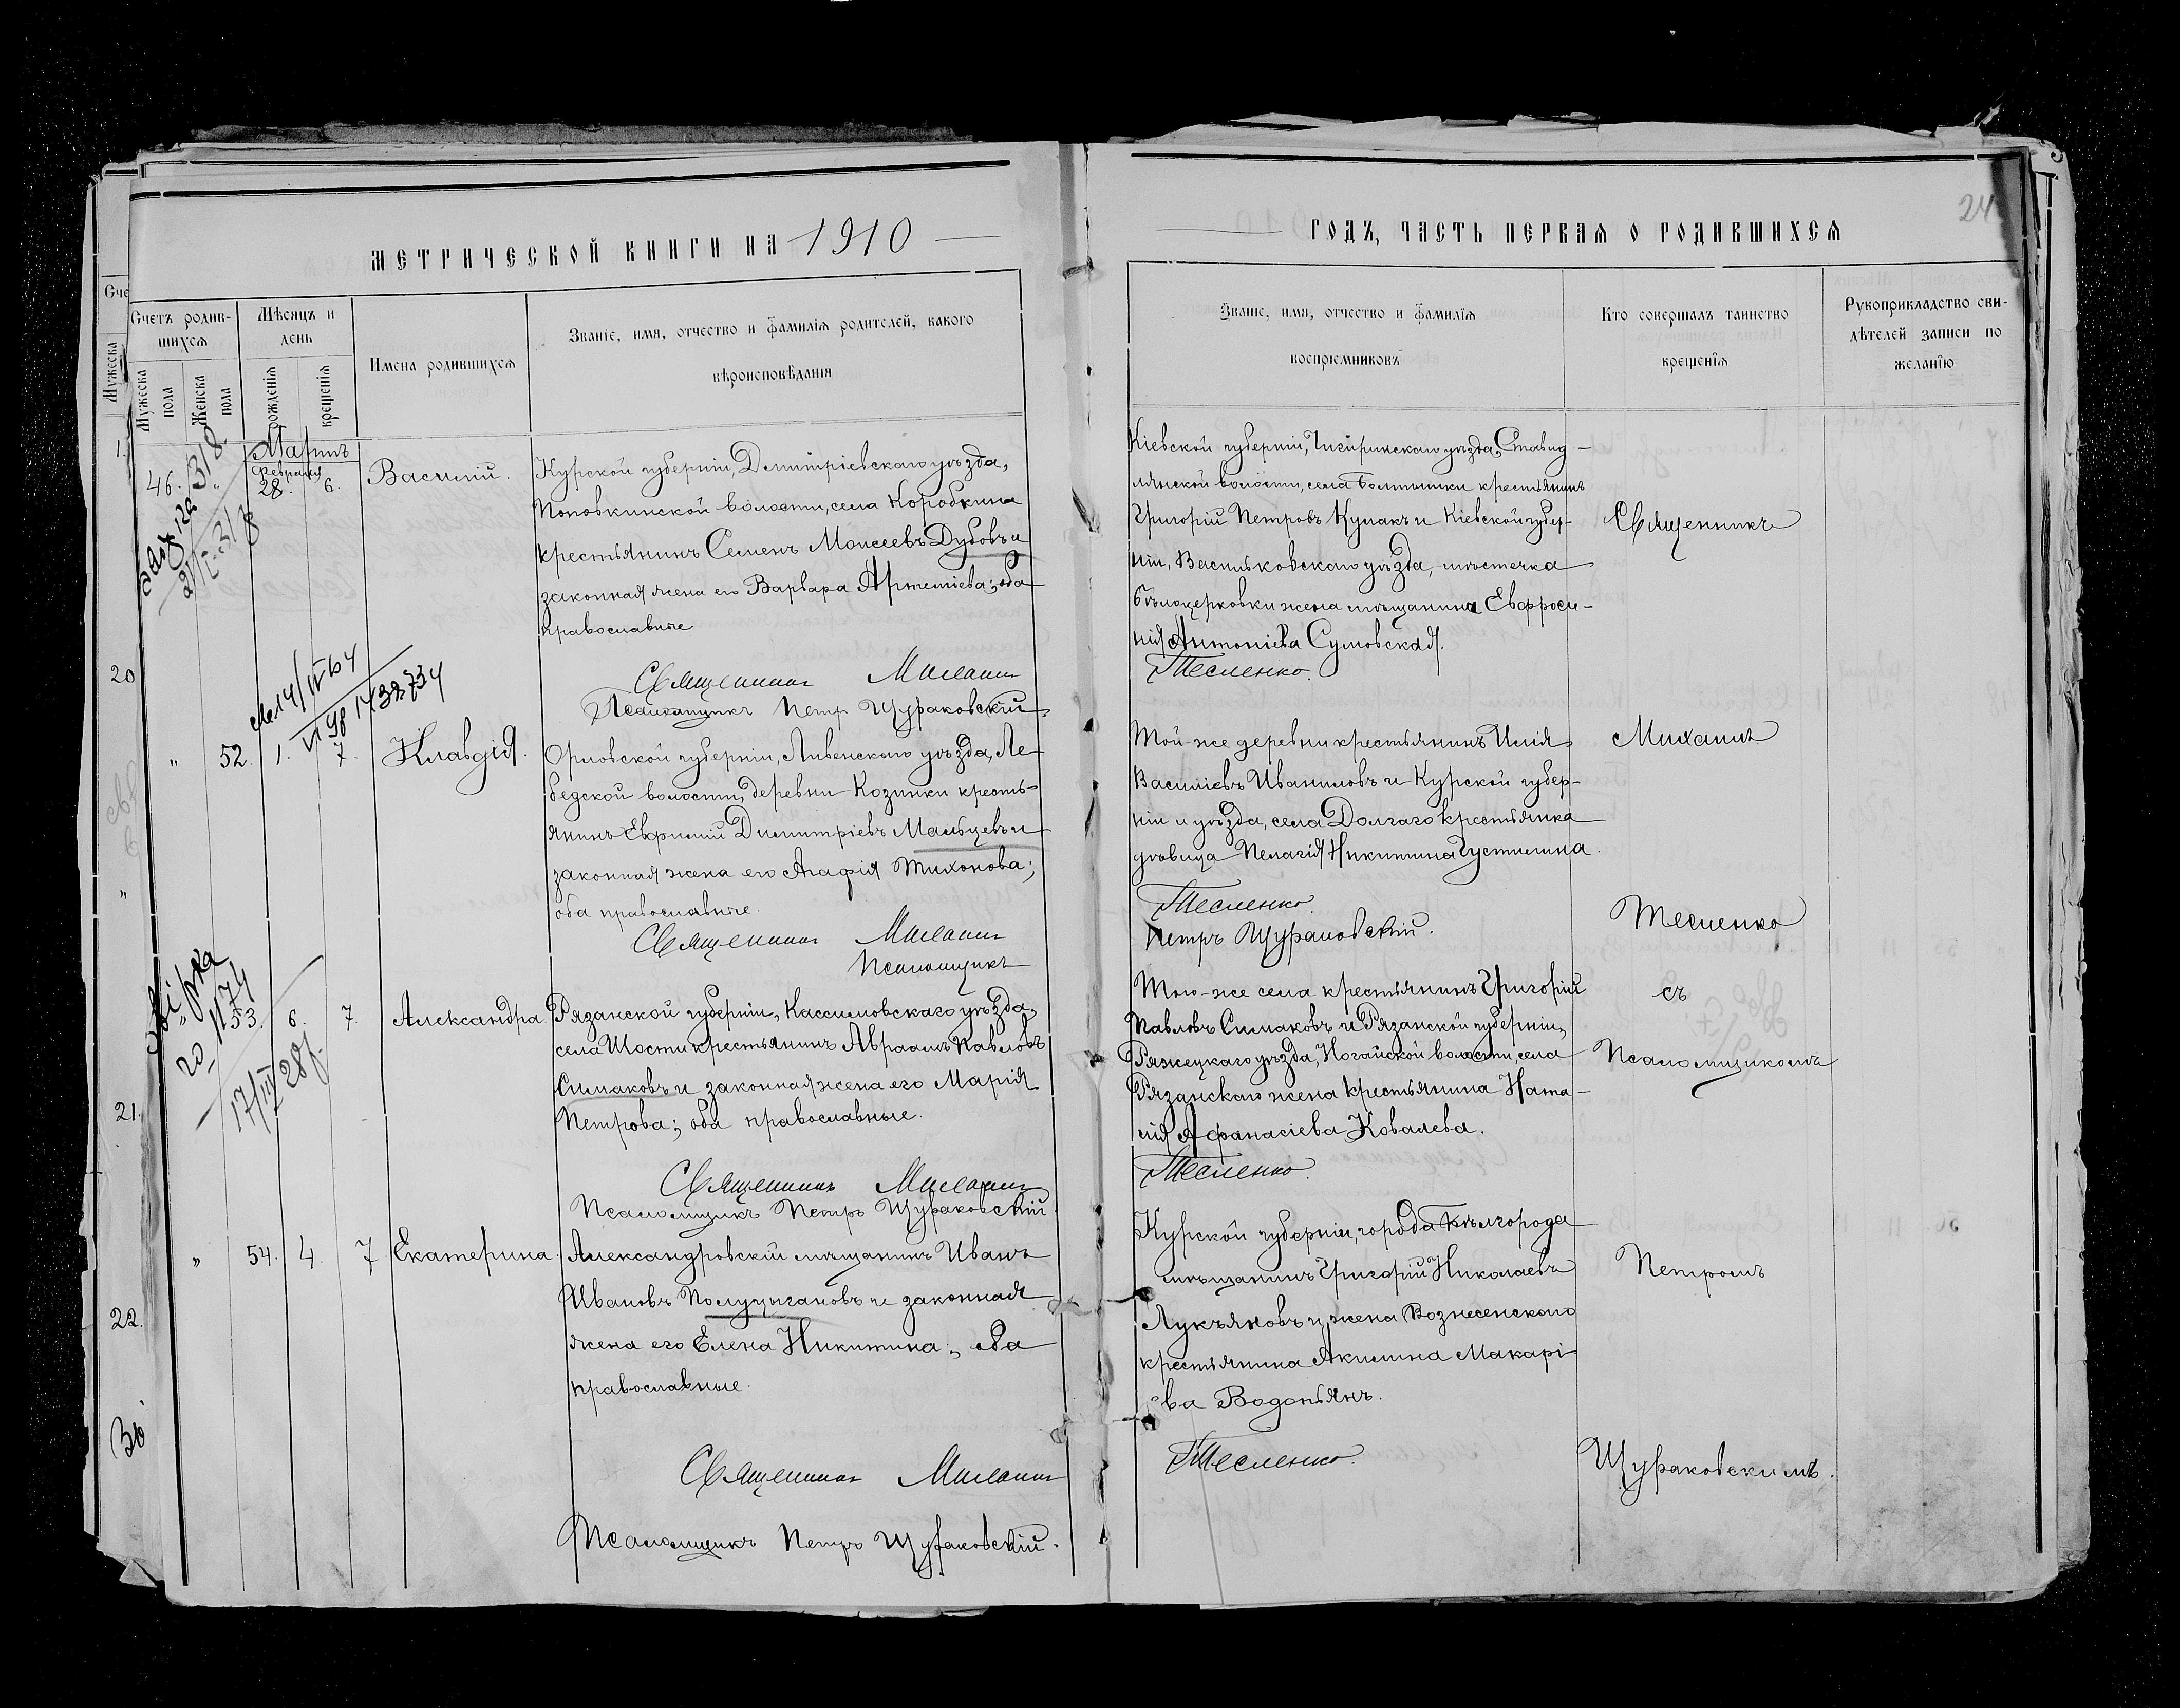 МЕТРИЧЕСКОЙ КНИГИ НА 1910
Счетъ родив-
шихся
Мужеска
пола
Женска
пола
Мѣсяцъ и
день
рожденія
крещенія
Имена родившихся
Званіе, имя, отчество и фамилія родителей, какого
вѣроисповѣданія
Мартъ
46.
Февраля
28.
6.
Василій.
Курской губерніи, Дмитріевскаго уѣзда,
Поповкинской волости, села Коробкина
крестьянинъ Семенъ Моисеевъ Дубовъ и
законная жена его Варвара Артеміева; оба
православные
Священникъ
Псаломщикъ Петръ Щураковскій.
" 52. 1. 7. Клавдія.
Орловской губерніи, Ливенскаго уѣзда, Ле-
бедской волости, деревни Козинки кресть-
янинъ Евфимій Димитріевъ Мальцевъ и
законная жена его Агафія Тихонова;
оба православные.
Священникъ
Псаломщикъ
" 53. 6. 7. Александра
Рязанской губерніи, Кассимовскаго уѣзда,
села Шости крестьянинъ Авраамъ Павловъ
Симаковъ и законная жена его Марія
Петрова; оба православные.
Священникъ
Псаломщикъ Петръ Щураковскій
" 54. 4. 7 Екатерина.
Александровскій мѣщанинъ Иванъ
Ивановъ Полуцыгановъ и законная
жена его Елена Никитина; оба
православные.
Священникъ
Псаломщикъ Петръ Щураковскій.
Сче
Мужеска
1.
20
"
21.
22.
30
ГОДЪ, ЧАСТЬ ПЕРВАЯ О РОДИВШИХСЯ
24
Званіе, имя, отчество и фамилія
воспріемниковъ
Кто совершалъ таинство
крещенія
Рукоприкладство сви-
дѣтелей записи по
желанію
Кіевской губерніи, Чигиринскаго уѣзда, Ставид-
лянской волости, села Болтышки крестьянинъ
Григорій Петровъ Кулакъ и Кіевской губер-
ніи, Васильковскаго уѣзда, мѣстечка
Бѣлоцерковки жена мѣщанина Евфроси-
нія Антоніева Сумовская.
Тесленко.
Той-же деревни крестьянинъ Илія
Василіевъ Иваниловъ и Курской губер-
ніи и уѣзда, села Долгаго крестьянка
дѣвица Пелагія Никитина Густилина.
Тесленко.
Петръ Щураковскій.
Того-же села крестьянинъ Григорій
Павловъ Симаковъ и Рязанской губерніи,
Ряжецкаго уѣзда, Ногайской волости, села
Рязанскаго жена крестьянина Ната-
лія Афанасіева Ковалева.
Тесленко.
Курской губерніи, города Бѣлгорода
мѣщанинъ Григорій Николаевъ
Лукъяновъ и жена Вознесенскаго
крестьянина Акилина Макарі-
ева Водопьянъ.
Тесленко.
Священникъ
Михаилъ
Тесленко
съ
Псаломщикомъ
Петромъ
Щураковскимъ.